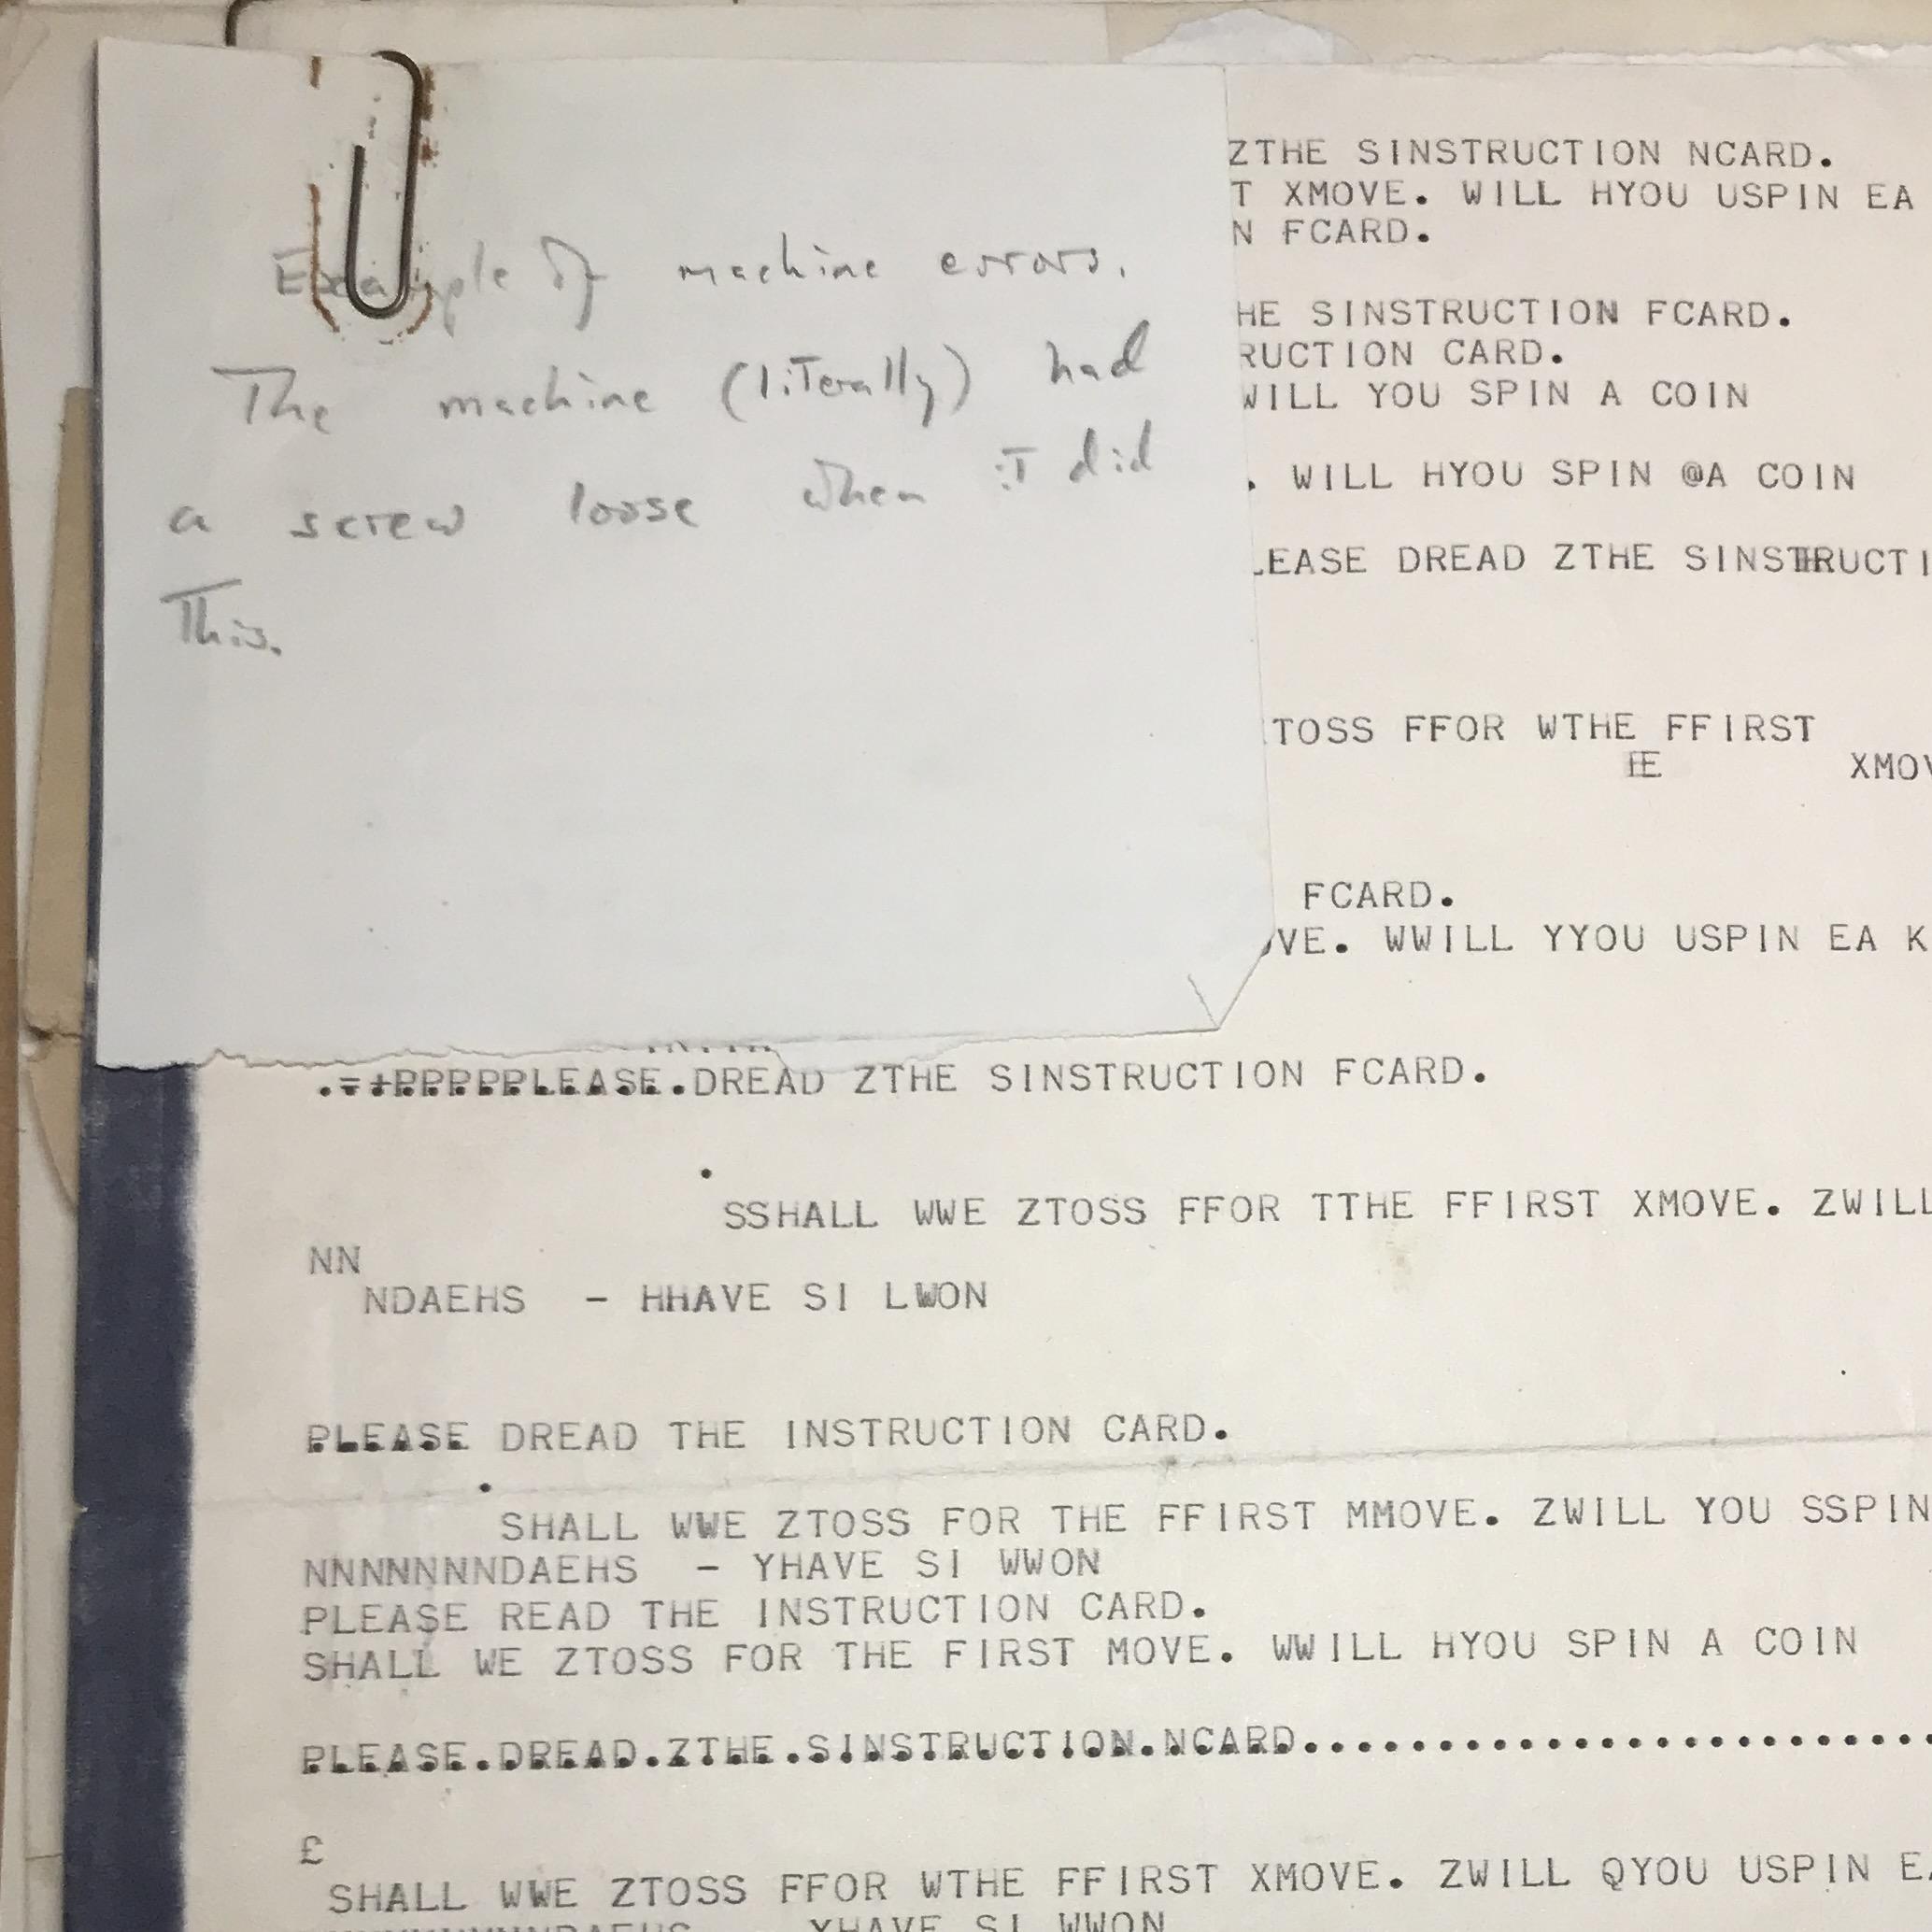 Example of machine errors.
The machine (literally) had
a screw loose when it did
This.
ZTHE SINSTRUCTION NCARD.
T XMOVE. WILL HYOU USPIN EA
N FCARD.
HE SINSTRUCTION FCARD.
RUCTION CARD.
WILL YOU SPIN A COIN
. WILL HYOU SPIN @A COIN
LEASE DREAD ZTHE
TOSS FFOR WTHE FFIRST
XMOV
FCARD.
VE. WWILL YYOU USPIN EA K
.=+PPPPPLEASE.DREAD ZTHE SINSTRUCTION FCARD.
.
SSHALL WWE ZTOSS FFOR TTHE FFIRST XMOVE. ZWILL
NN
NDAEHS - HHAVE SI LWON
PLEASE DREAD THE INSTRUCTION CARD.
.
SHALL WWE ZTOSS FOR THE FFIRST MMOVE. ZWILL YOU SSPIN
NNNNNNNDAEHS - YHAVE SI WWON
PLEASE READ THE INSTRUCTION CARD.
SHALL WE ZTOSS FOR THE FIRST MOVE. WWILL HYOU SPIN A COIN
PLEASE.DREAD.ZTHE.SINSTRUCTION.NCARD........................
£
SHALL WWE ZTOSS FFOR WTHE FFIRST XMOVE. ZWILL QYOU USPIN EA
YHAVE SI WWON